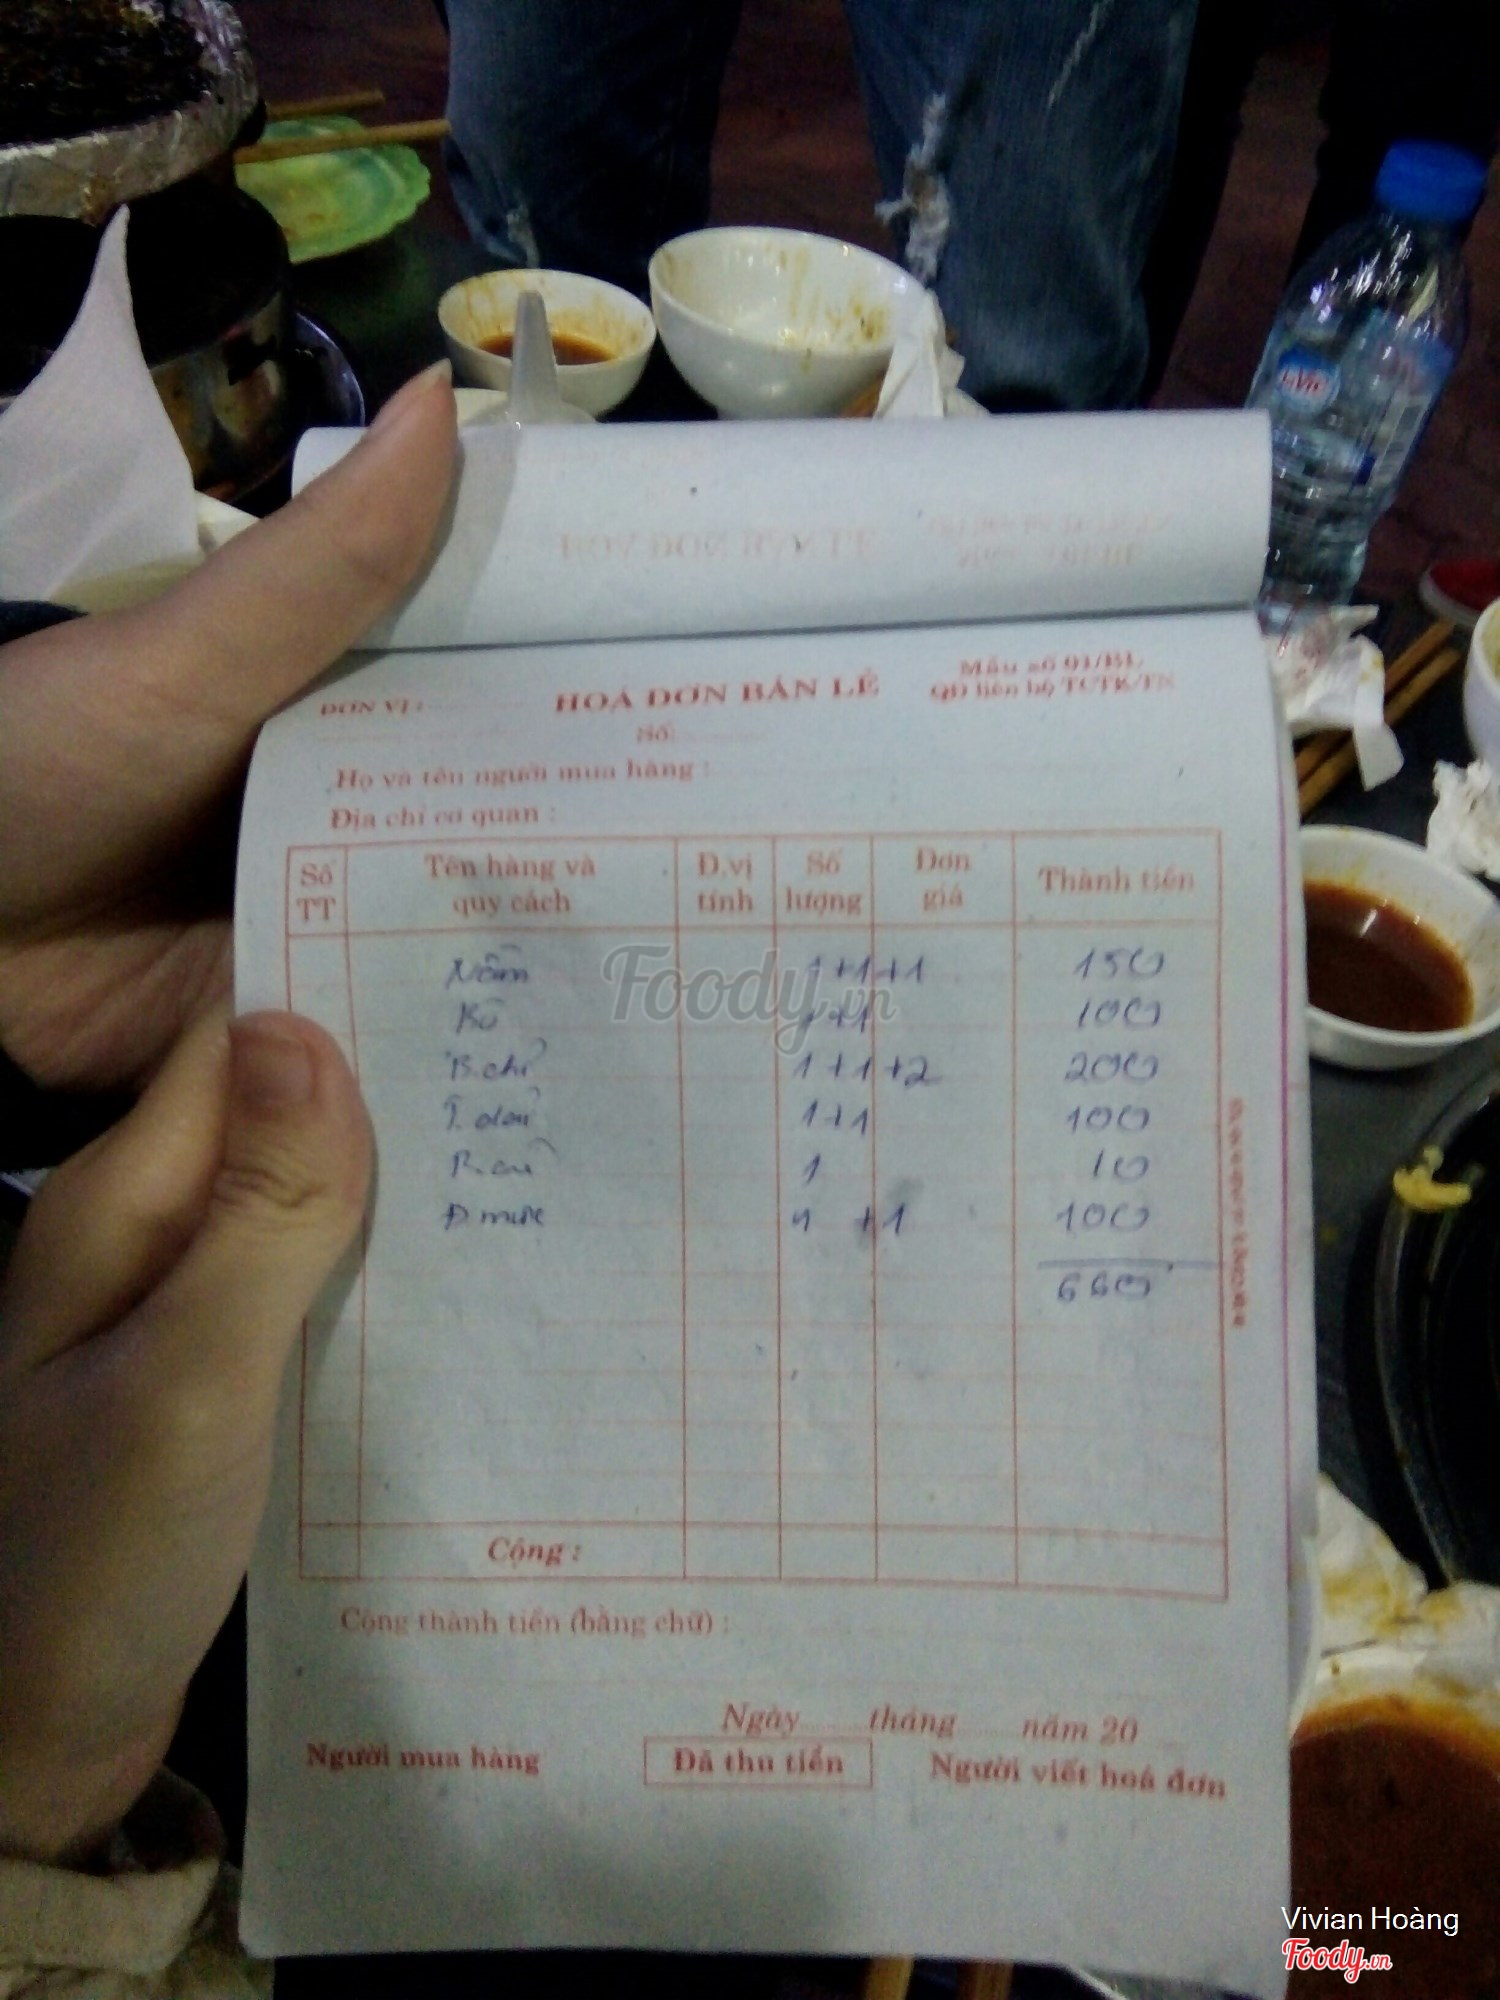 ĐƠN VỊ :
HOÁ ĐƠN BÁN LẺ
Mẫu số 01/BL
QĐ liên bộ TCTK/TN
Số:
Họ và tên người mua hàng :
Địa chỉ cơ quan :
Số TT
Tên hàng và quy cách
Đ.vị tính
Số lượng
Đơn giá
Thành tiền
Nầm 1+1+1 150
Bò 1+1 100
B.chỉ 1+1+2 200
1+1 100
1 10
Đ mực 1 +1 100
660
Cộng :
Cộng thành tiền (bằng chữ) :
Ngày tháng năm 20
Người mua hàng
Đã thu tiền
Người viết hoá đơn
Foody.vn
LaVie
Vivian Hoàng
Foody.vn